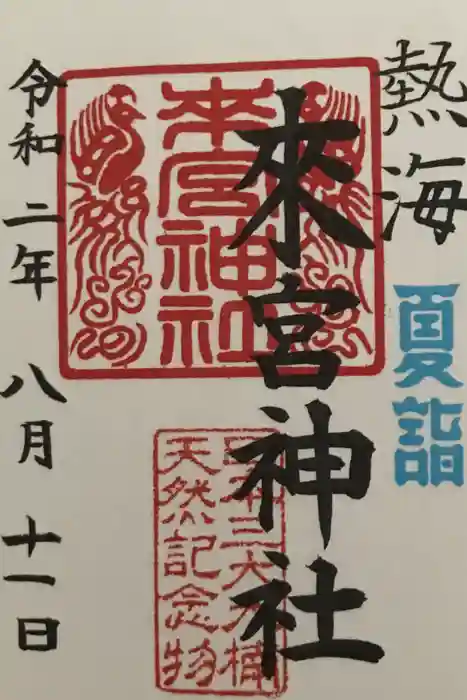 熱海
夏詣
來宮神社
來宮神社
日本三大大楠
天然記念物
令和二年 八月 十一日